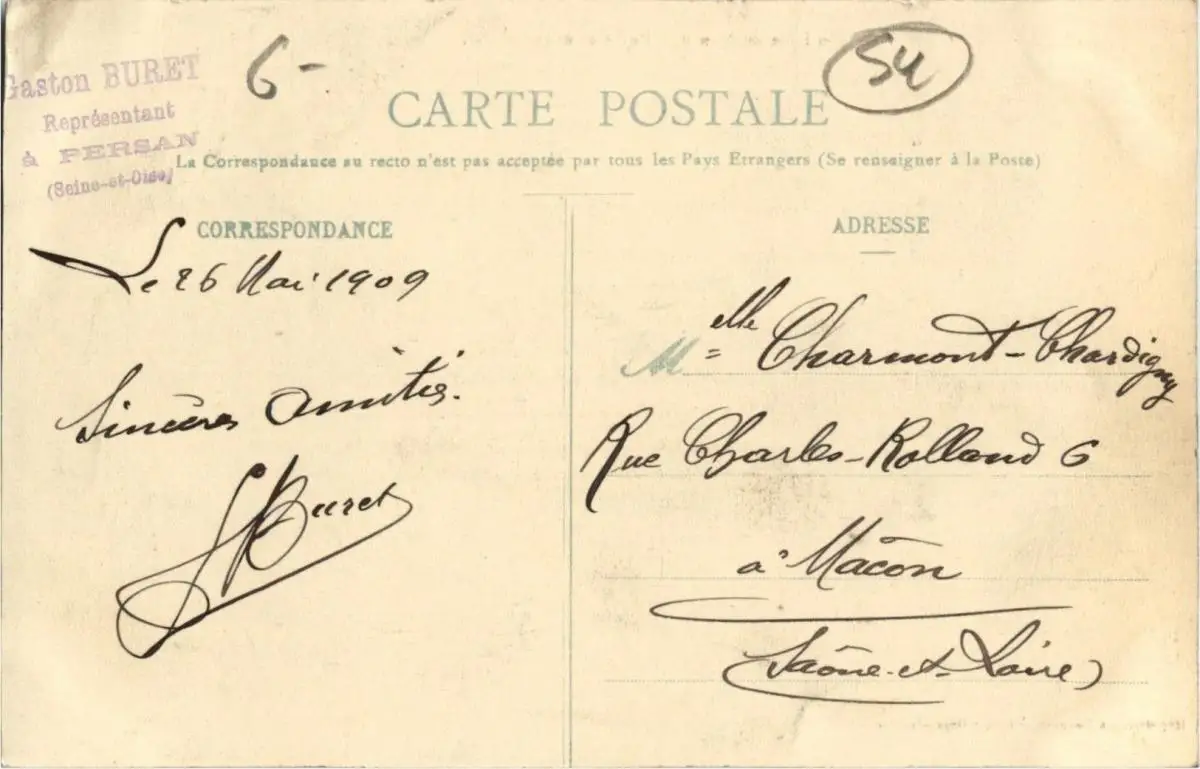 Gaston BURET
Représentant
à PERSAN
(Seine-et-Oise)
6-
54
CARTE POSTALE
La Correspondance au recto n'est pas acceptée par tous les Pays Etrangers (Se renseigner à la Poste)
CORRESPONDANCE
Le 26 Mai 1909
Sincères amitiés.
GBuret
ADRESSE
Melle Charmont-Chardigny
Rue Charles-Rolland 6
à Mâcon
Saône-et-Loire)